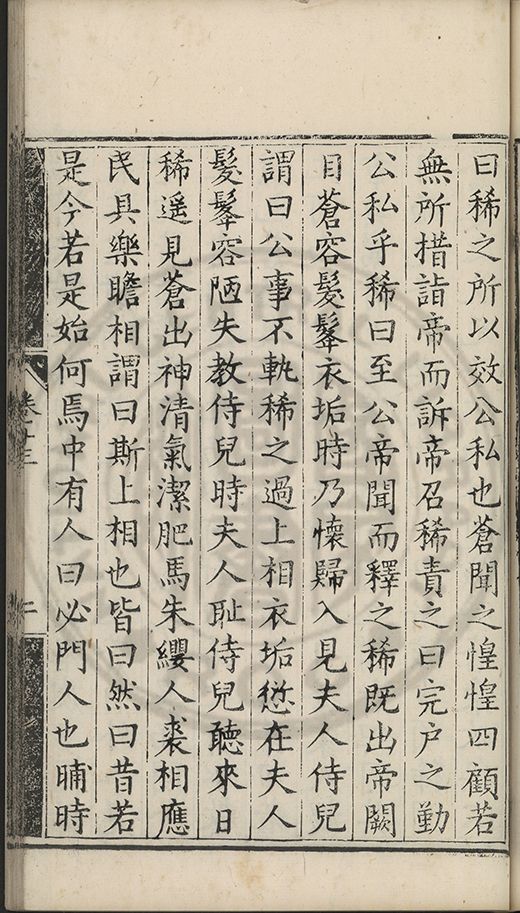 曰稀之所以效公私也蒼聞之惶惶四顧若
無所措詣帝而訴帝召稀責之曰完戶之勤
公私乎稀曰至公帝聞而釋之稀既出帝闕
目蒼容髮鬔衣垢時乃懷歸入見夫人侍兒
謂曰公事不軌稀之過上相衣垢愆在夫人
髮鬔容陋失教侍兒時夫人耻侍兒聽來日
稀遥見蒼出神清氣潔肥馬朱纓人裘相應
民具樂瞻相謂曰斯上相也皆曰然曰昔若
是今若是始何焉中有人曰必門人也晡時
卷十三
二